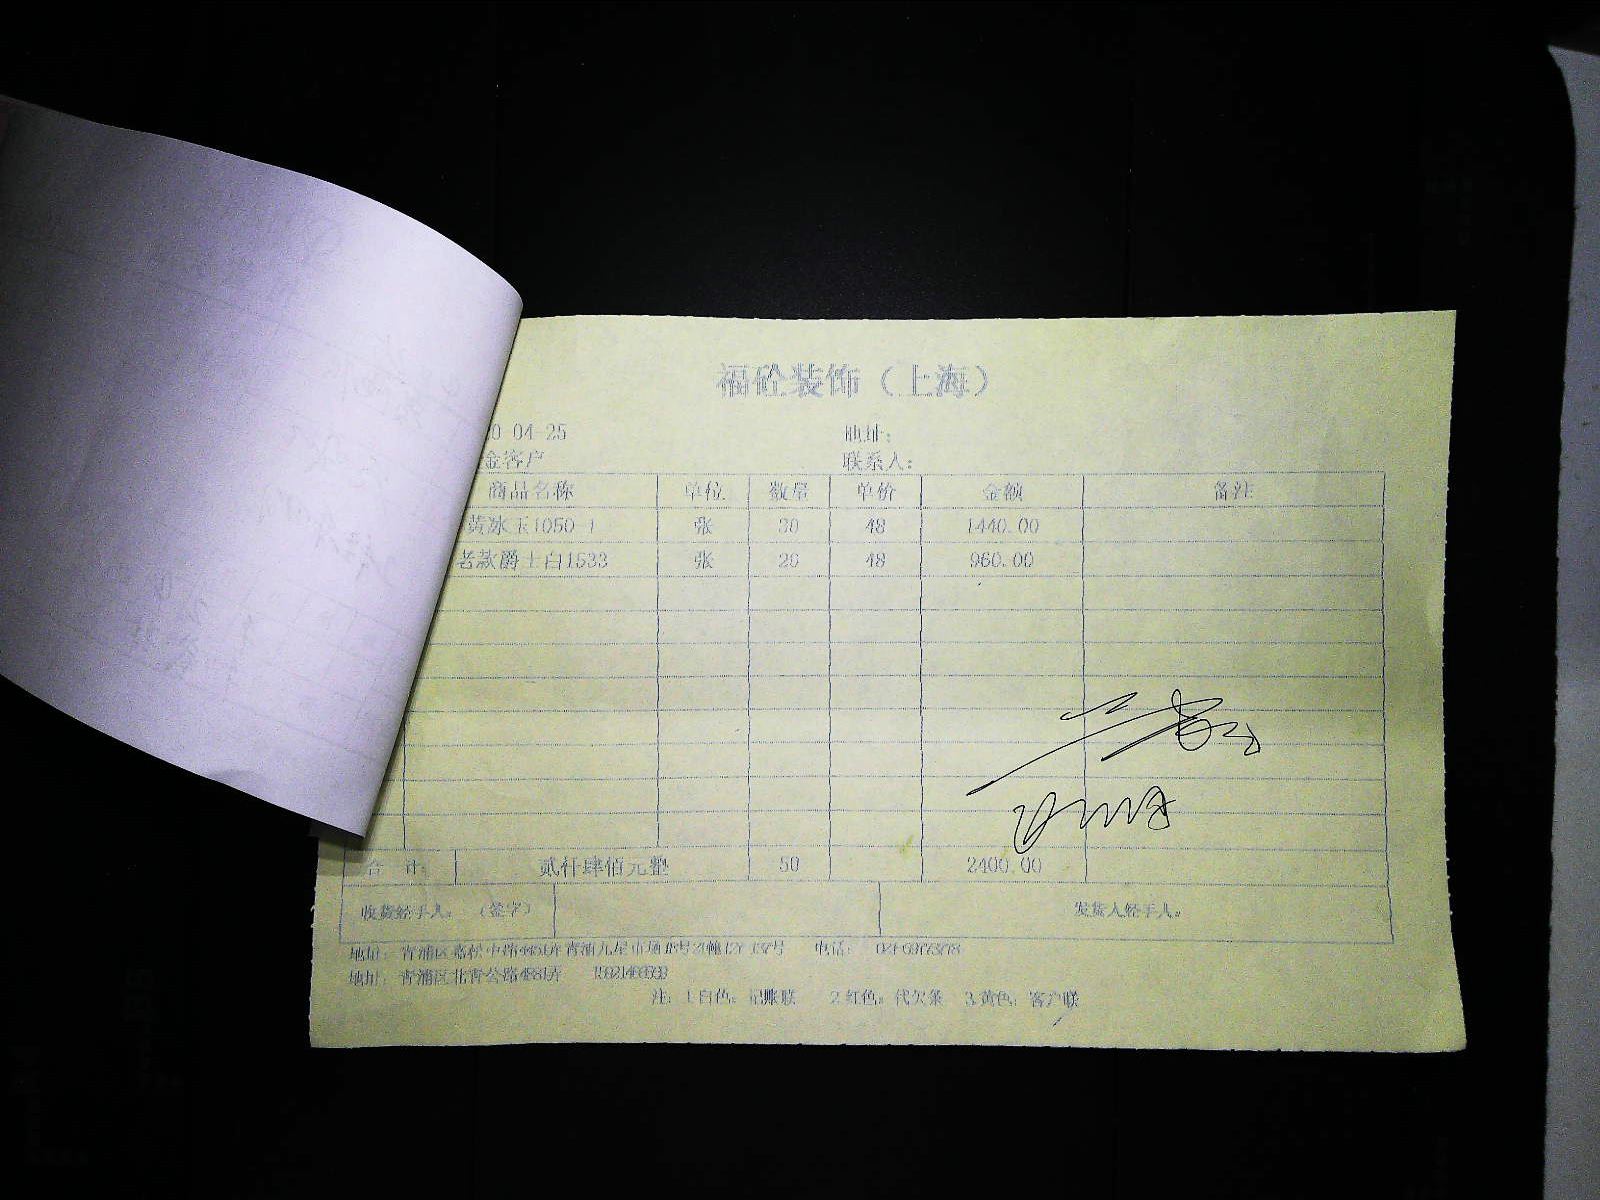 福砼装饰（上海）
0-04-25 地址：
金客户 联系人：
商品名称 单位 数量 单价 金额 备注
黄冰玉1050-1 张 30 48 1440.00
老款爵士白1533 张 20 48 960.00
合 计： 贰仟肆佰元整 50 2400.00
收货经手人：（签字） 发货人经手人：
地址：青浦区嘉松中路 电话：
地址：青浦区北青公路
注：1.白色：记账联 2.红色：代欠条 3.黄色：客户联